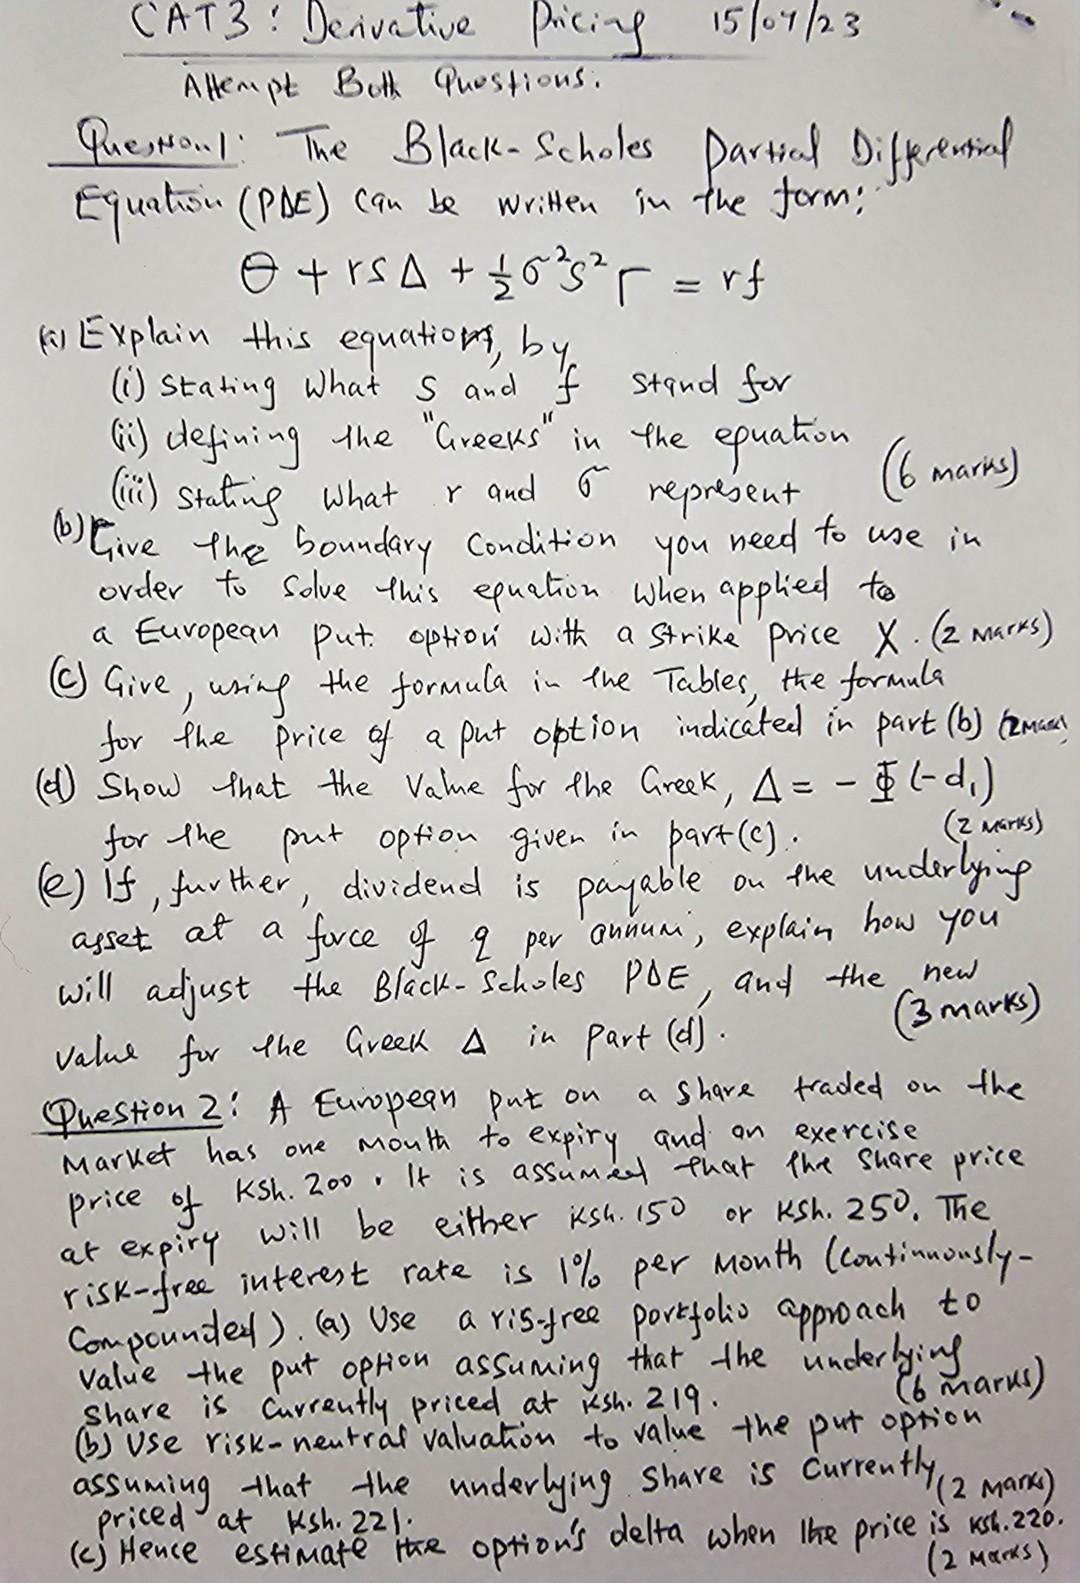 CAT3: Derivative Pricing 15/04/23
Attempt Both Questions.
Question1: The Black-Scholes Partial Differential
Equation (PDE) can be written in the form:
Θ + rSΔ + ½σ²S²Γ = rf
(a) Explain this equation, by
(i) stating what S and f stand for
(ii) defining the "Greeks" in the equation
(iii) stating what r and σ represent (6 marks)
(b) Give the boundary condition you need to use in
order to solve this equation when applied to
a European put option with a strike price X. (2 marks)
(c) Give, using the formula in the Tables, the formula
for the price of a put option indicated in part (b) (2 marks)
(d) Show that the value for the Greek, Δ = - Φ(-d₁)
for the put option given in part(c). (2 marks)
(e) If, further, dividend is payable on the underlying
asset at a force of q per annum, explain how you
will adjust the Black-Scholes PDE, and the new
value for the Greek Δ in part (d). (3 marks)
Question 2: A European put on a share traded on the
Market has one month to expiry and an exercise
price of Ksh. 200. It is assumed that the share price
at expiry will be either Ksh. 150 or Ksh. 250. The
risk-free interest rate is 1% per Month (continuously-
compounded). (a) Use a ris-free portfolio approach to
value the put option assuming that the underlying
share is currently priced at Ksh. 219. (6 marks)
(b) Use risk-neutral valuation to value the put option
assuming that the underlying share is currently (2 marks)
priced at Ksh. 221.
(c) Hence estimate the option's delta when the price is Ksh.220.
(2 marks)